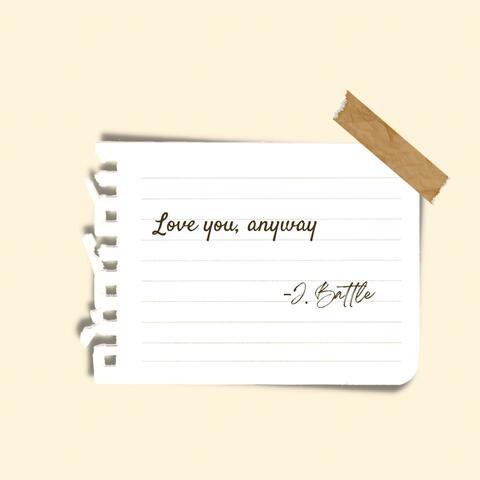 Love you, anyway
-J. Battle